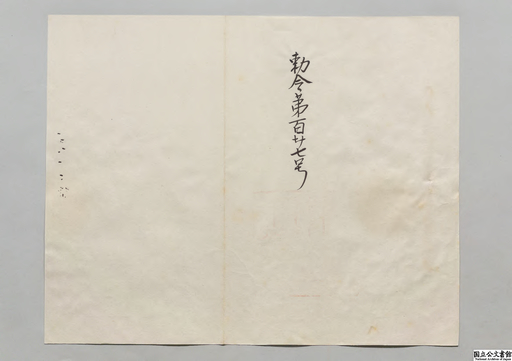 勅令第百廿七号
国立公文書館
National Archives of Japan